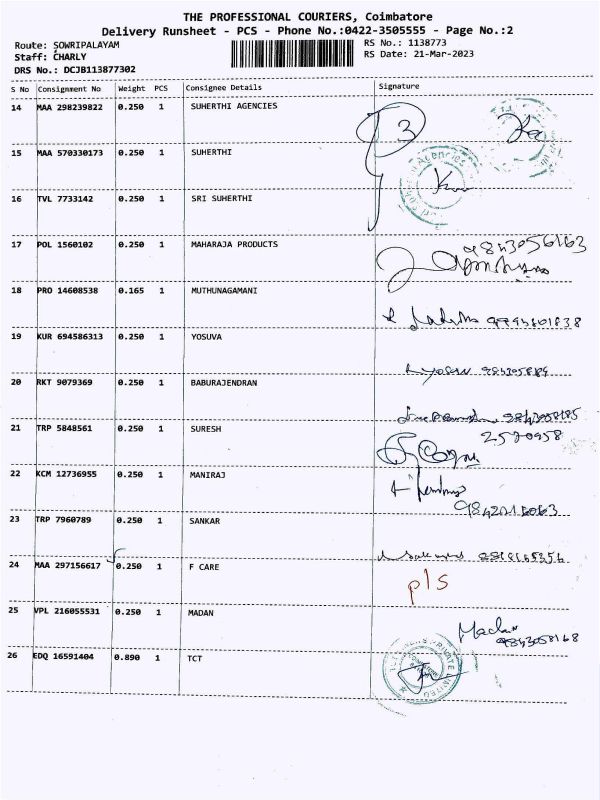 THE PROFESSIONAL COURIERS, Coimbatore
Delivery Runsheet - PCS - Phone No.:0422-3505555 - Page No.:2
Route: SOWRIPALAYAM
RS No.: 1138773
Staff: CHARLY
RS Date: 21-Mar-2023
DRS No.: DCJB113877302
S No Consignment No Weight PCS Consignee Details Signature
14 MAA 298239822 0.250 1 SUHERTHI AGENCIES
15 MAA 570330173 0.250 1 SUHERTHI
16 TVL 7733142 0.250 1 SRI SUHERTHI
17 POL 1560102 0.250 1 MAHARAJA PRODUCTS 9843056163
18 PRO 14608538 0.165 1 MUTHUNAGAMANI
19 KUR 694586313 0.250 1 YOSUVA
20 RKT 9079369 0.250 1 BABURAJENDRAN
21 TRP 5848561 0.250 1 SURESH 2570958
22 KCM 12736955 0.250 1 MANIRAJ
23 TRP 7960789 0.250 1 SANKAR
24 MAA 297156617 0.250 1 F CARE pls
25 VPL 216055531 0.250 1 MADAN Madan 9843058168
26 EDQ 16591404 0.890 1 TCT